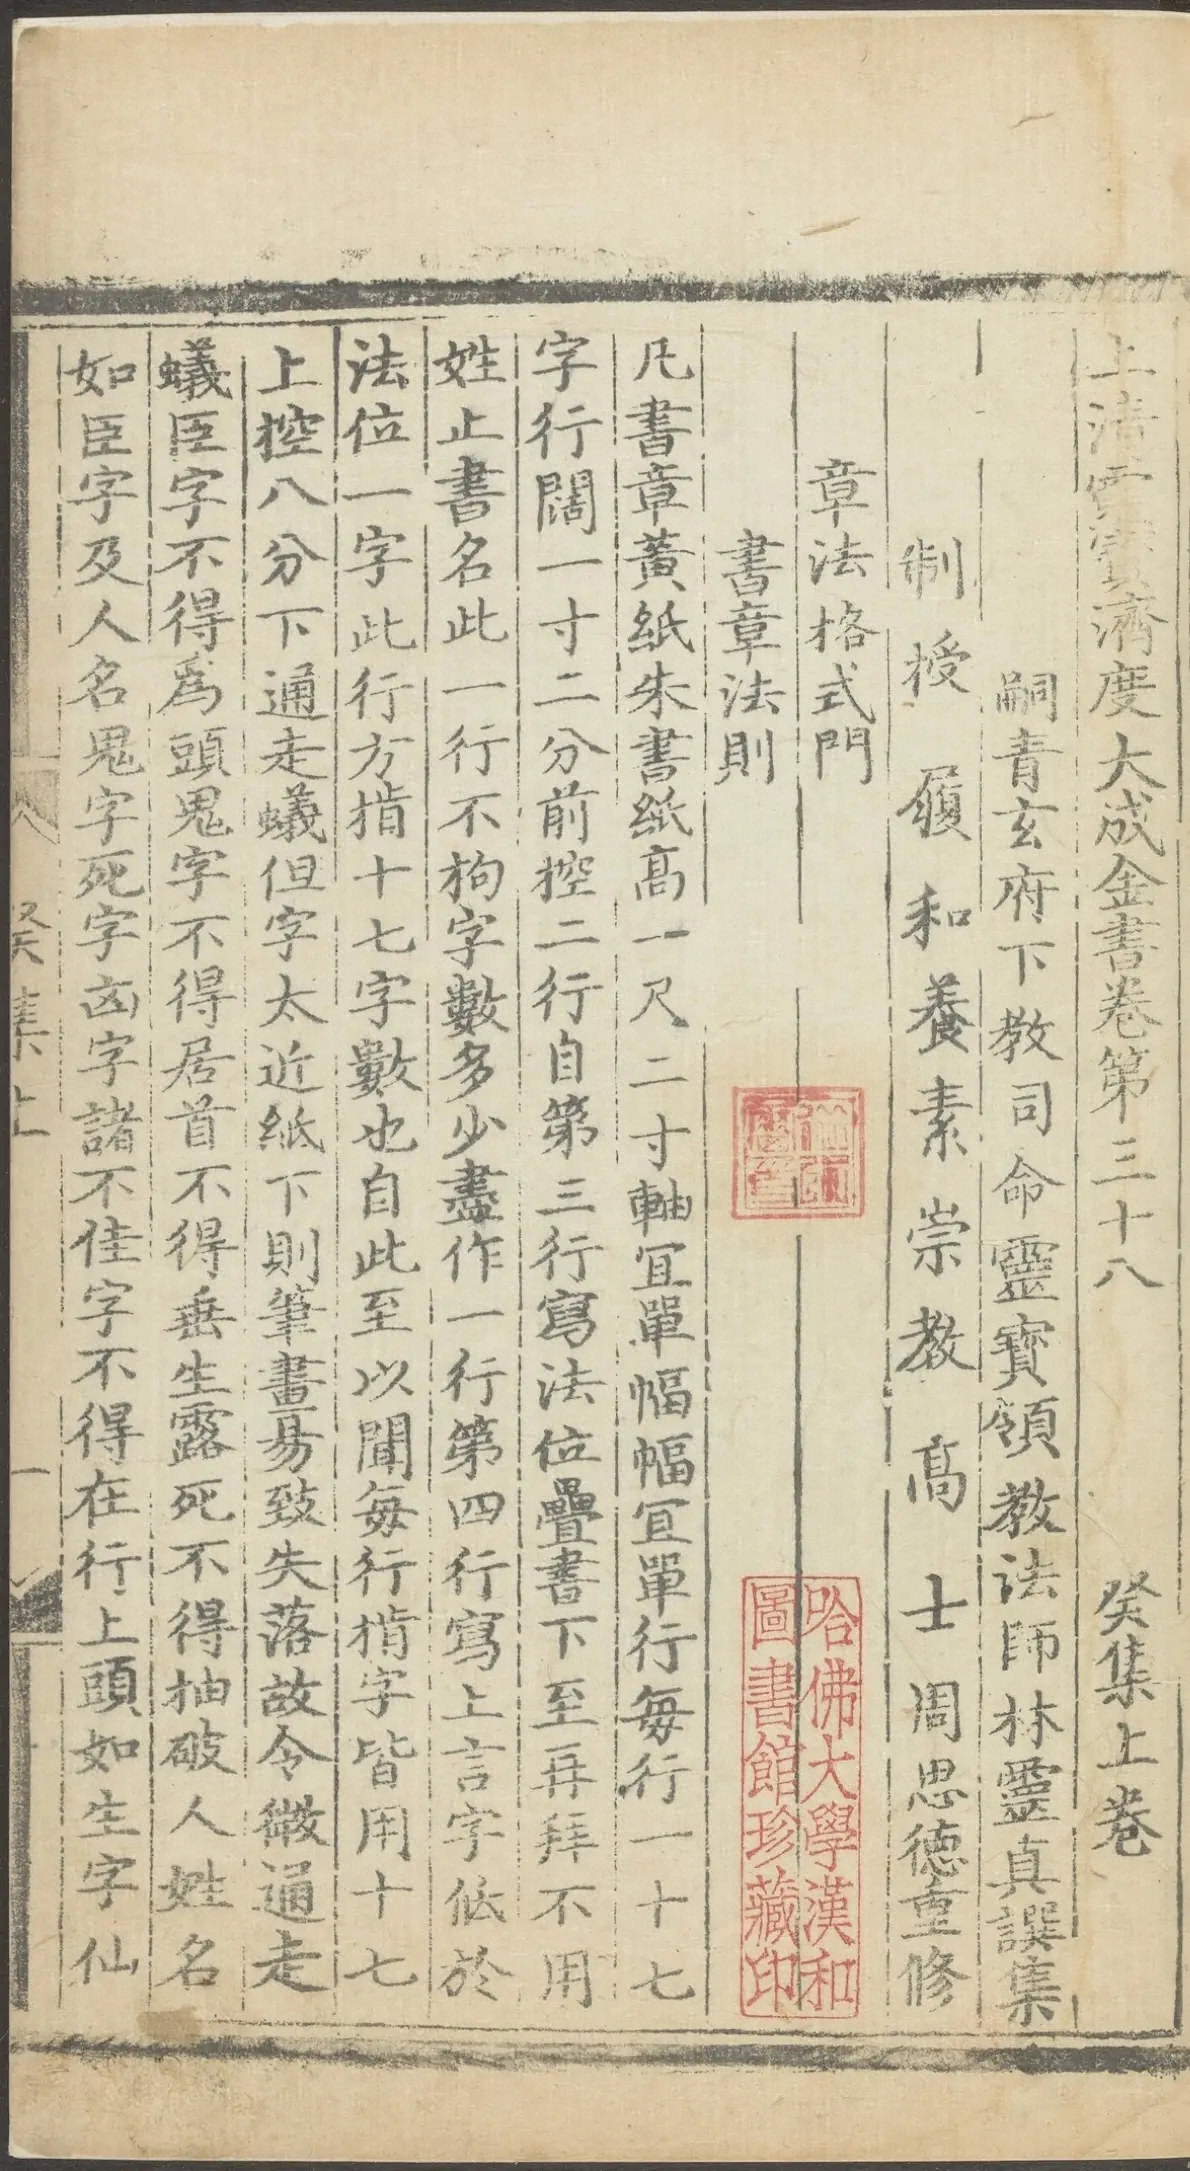 上清靈寶濟度大成金書卷第三十八 癸集上卷
嗣青玄府下教司命靈寶領教法師林靈真譔集
制授履和養素崇教高士周思德重修
章法格式門
書章法則
凡書章黃紙朱書紙高一尺二寸軸冝單幅幅冝單行每行一十七
字行闊一寸二分前控二行自第三行寫法位疊書下至再拜不用
姓止書名此一行不拘字數多少盡作一行第四行寫上言字低於
法位一字此行方揹十七字數也自此至以聞每行揹字皆用十七
上控八分下通走蟻但字太近紙下則筆畫易致失落故令微通走
蟻臣字不得為頭鬼字不得居首不得垂生露死不得抽破人姓名
如臣字及人名鬼字死字凶字諸不佳字不得在行上頭如生字仙
癸集上
一
哈佛大學漢和
圖書館珍藏印